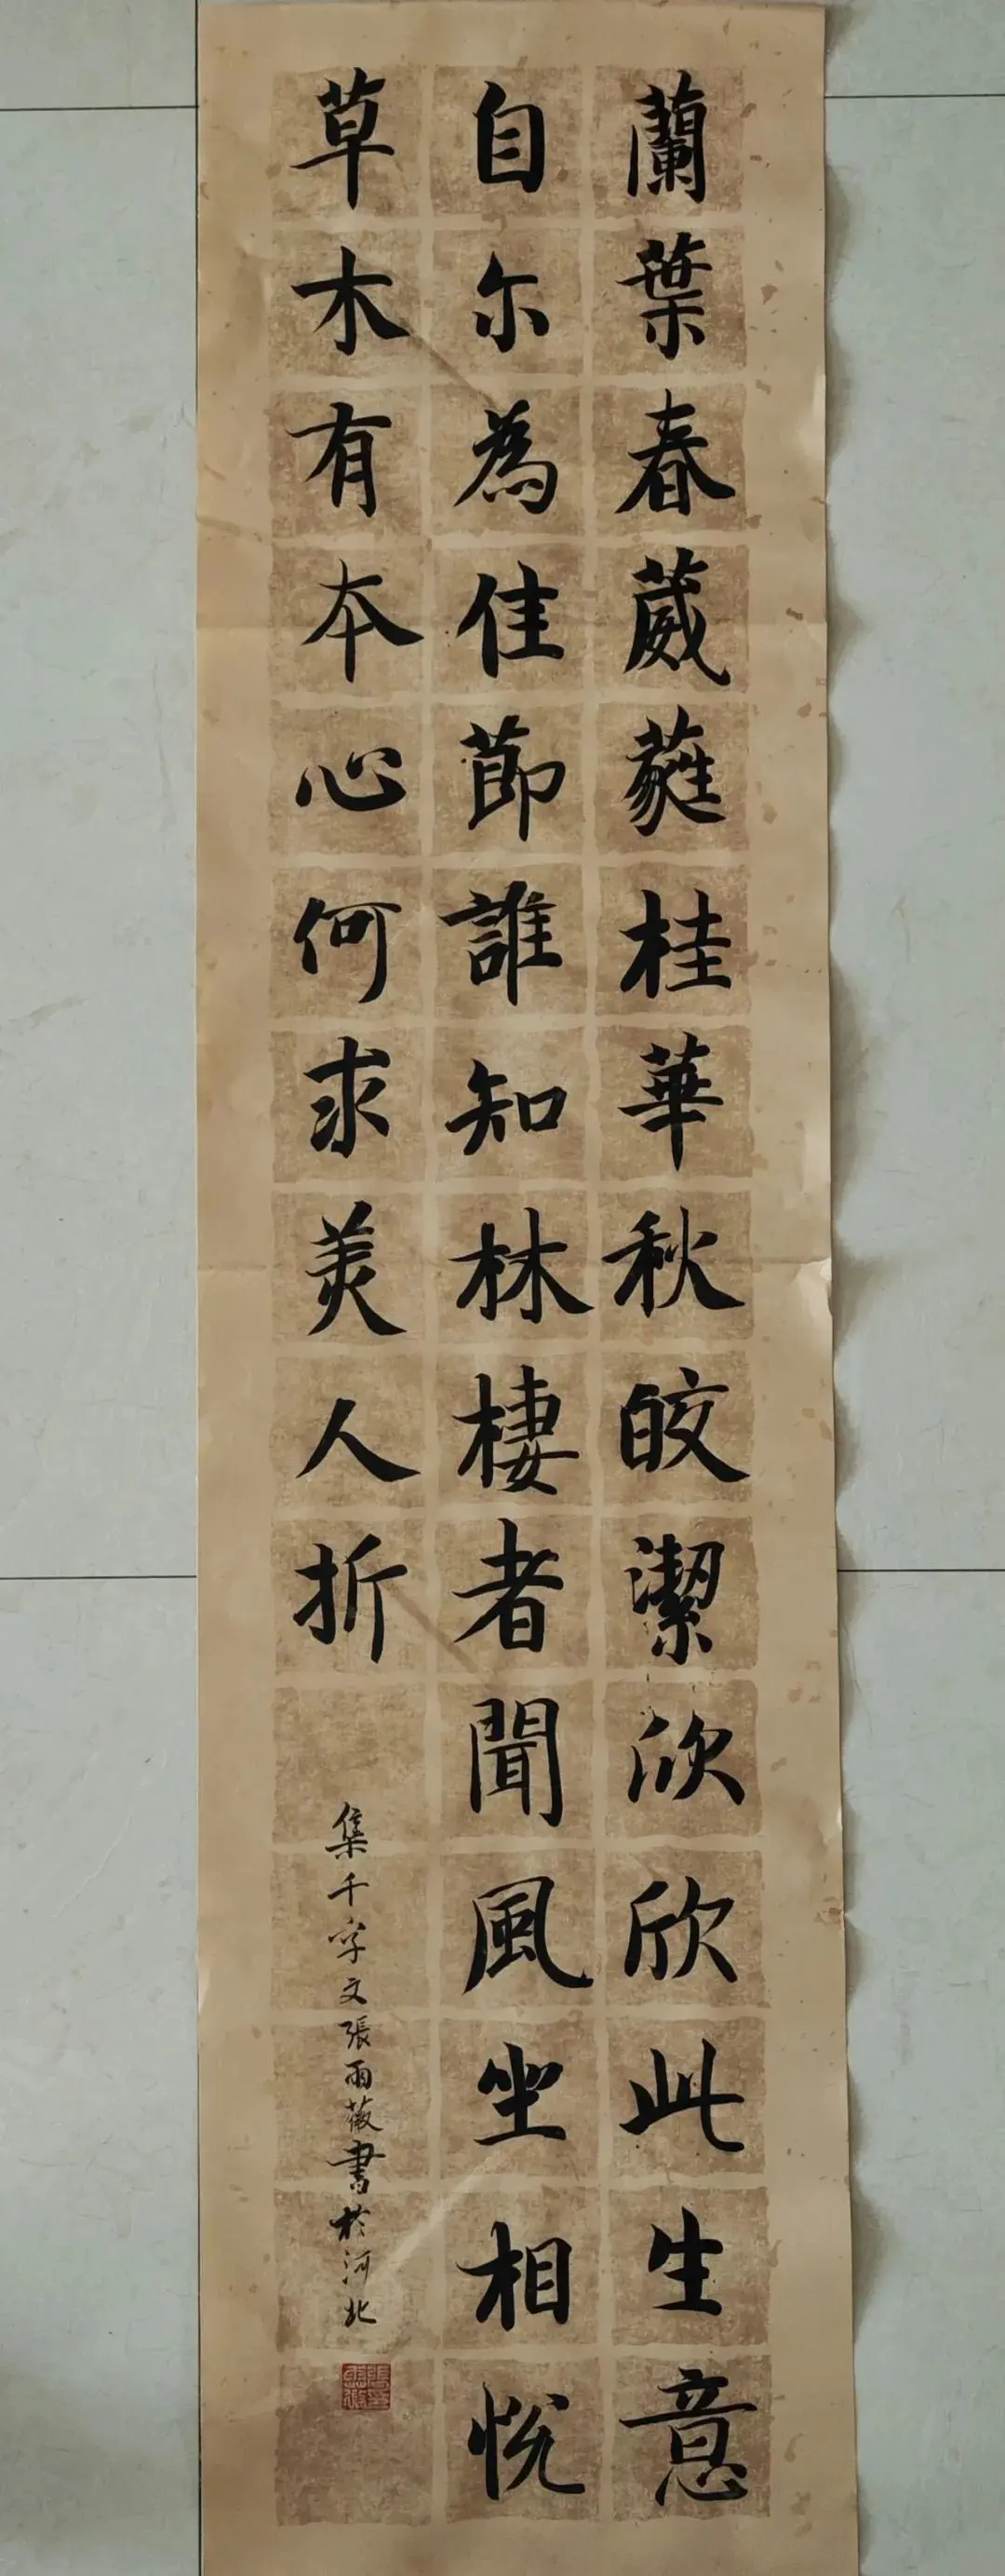 蘭葉春葳蕤桂華秋皎潔欣欣此生意
自尔為佳節誰知林棲者聞風坐相悅
草木有本心何求美人折
集千字文張雨薇書於河北